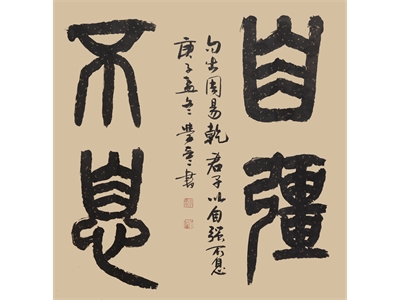 自彊
句出周易乾君子以自强不息
庚子孟冬书
不息